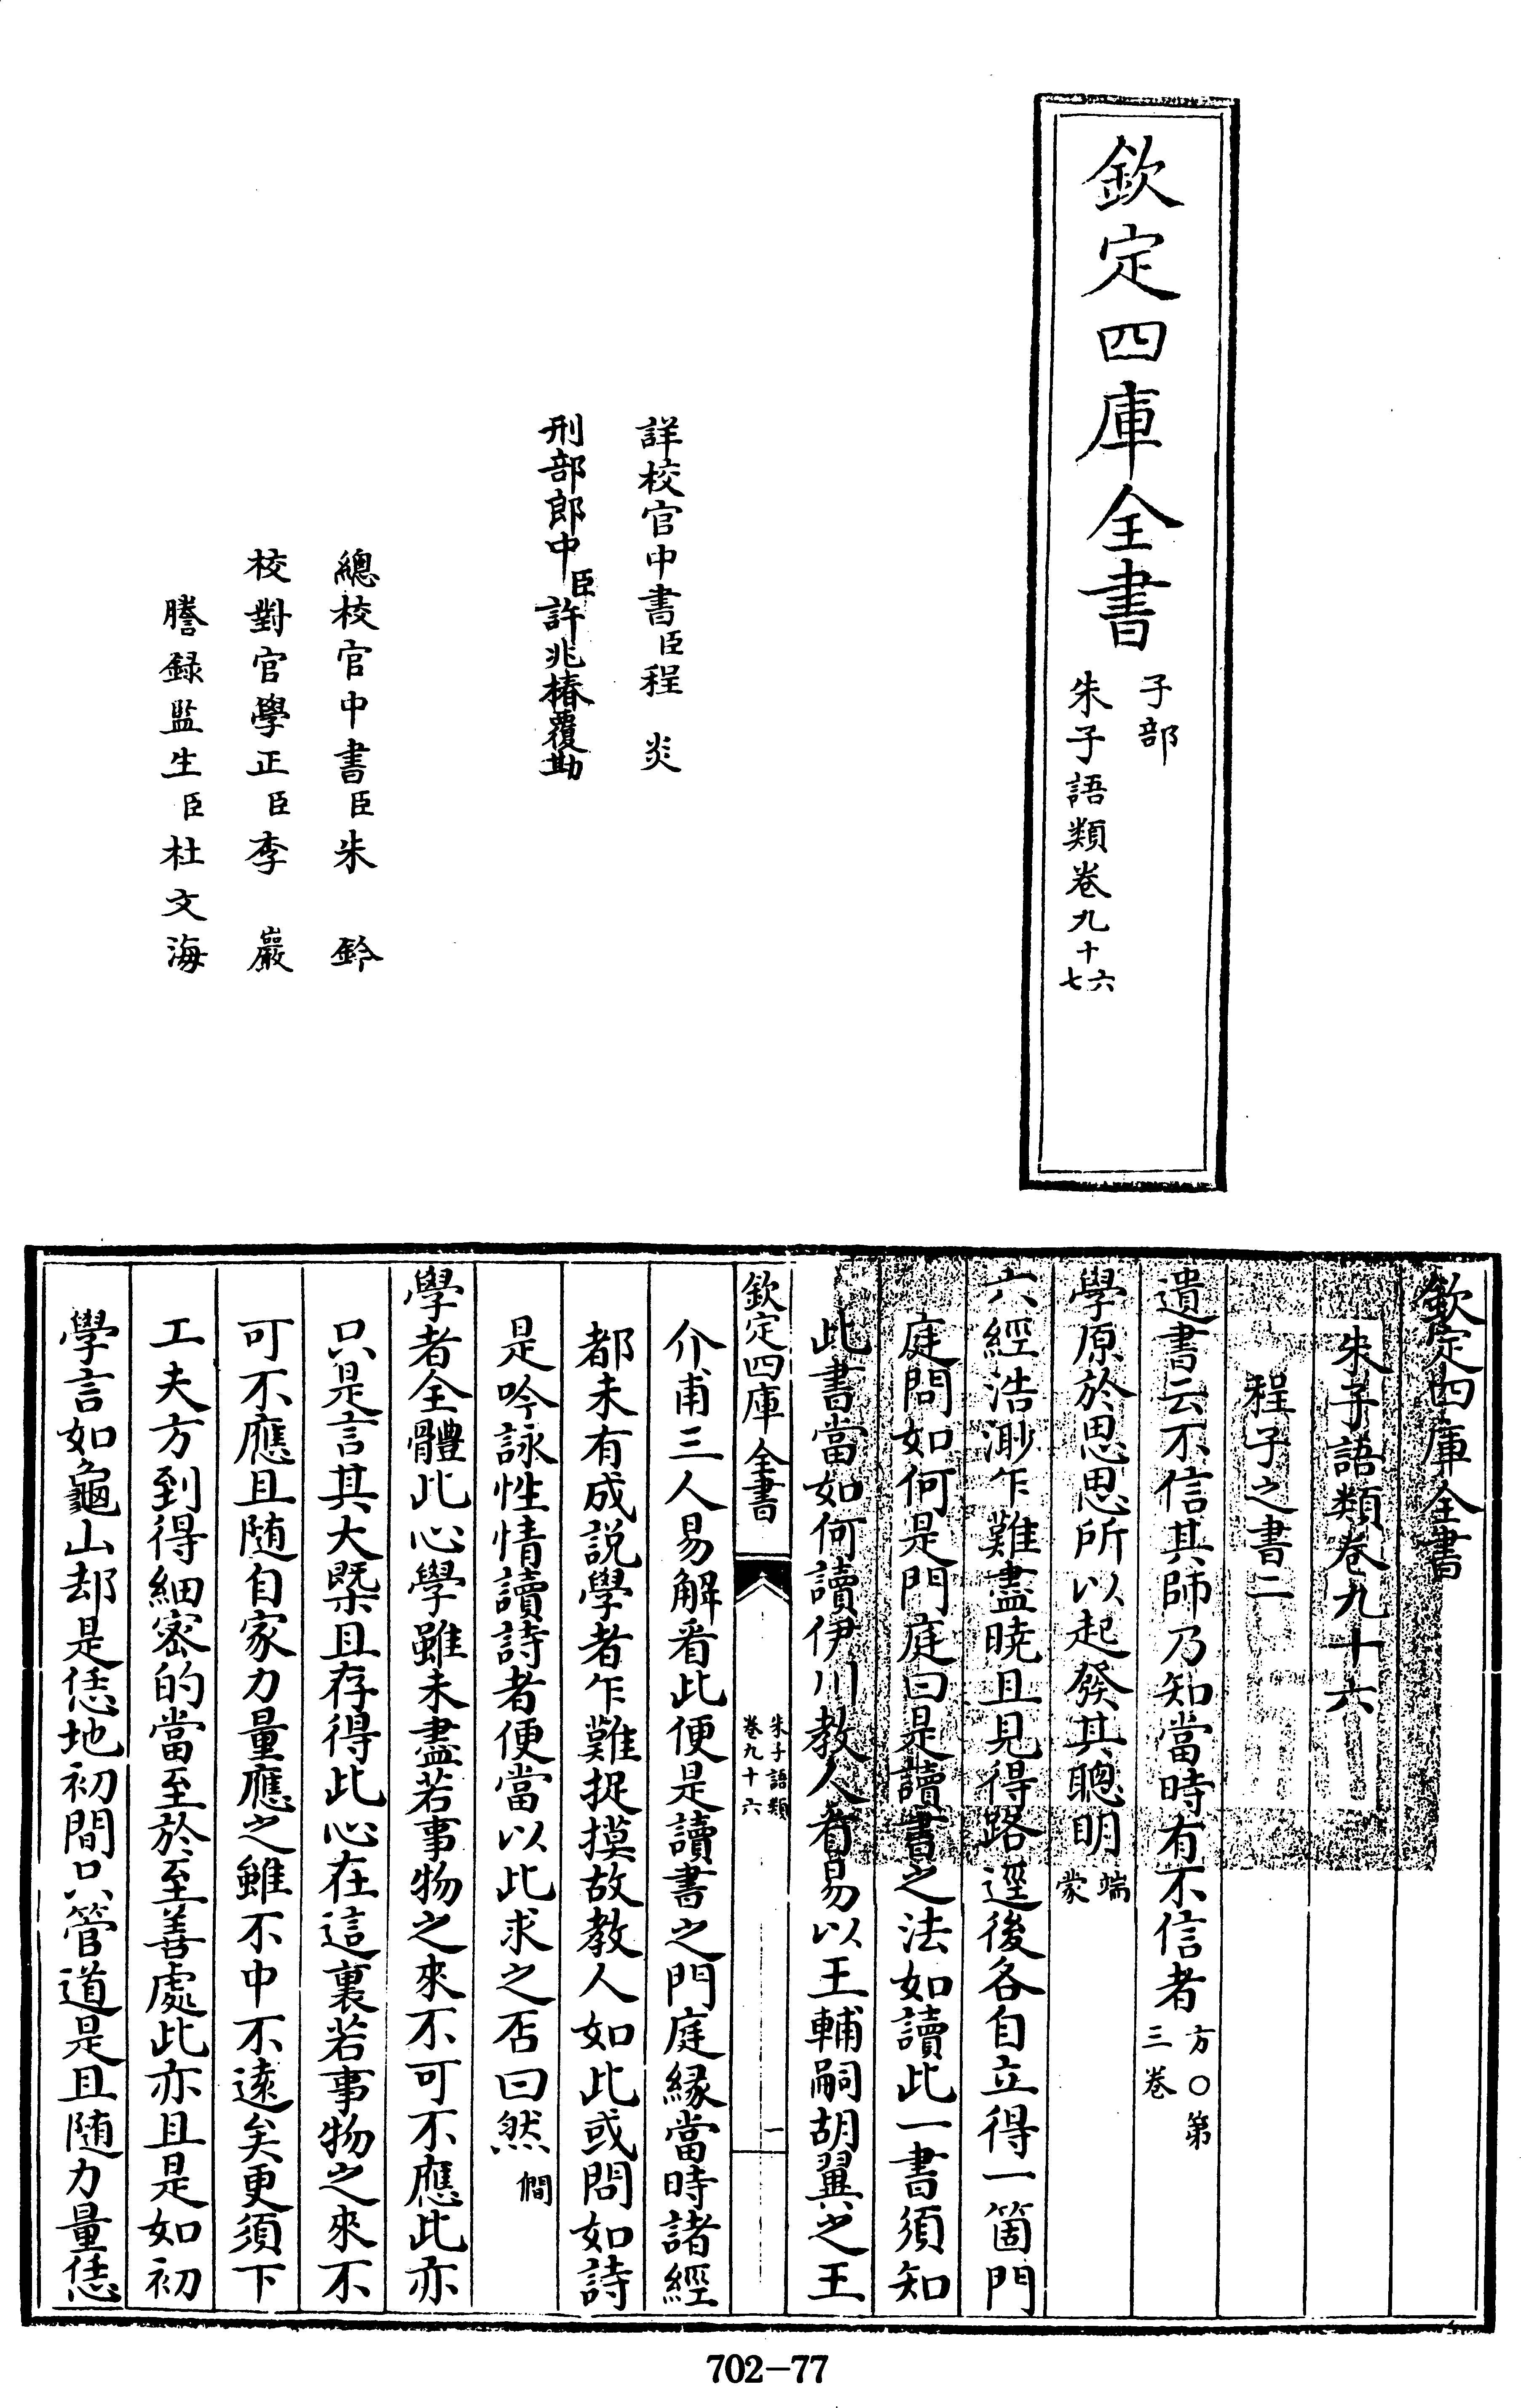 欽定四庫全書
子部
朱子語類卷九十六
七
詳校官中書臣程炎
刑部郎中臣許兆椿覆勘
總校官中書臣朱鈐
校對官學正臣李巖
謄録監生臣杜文海
欽定四庫全書
朱子語類卷九十六
程子之書二
遺書云不信其師乃知當時有不信者方○第三卷
學原於思思所以起發其聰明端蒙
六經浩渺乍難盡曉且見得路逕後各自立得一箇門
庭問如何是門庭曰是讀書之法如讀此一書須知
此書當如何讀伊川教人看易以王輔嗣胡翼之王
欽定四庫全書
朱子語類
卷九十六
一
介甫三人易解看此便是讀書之門庭緣當時諸經
都未有成説學者乍難捉摸故教人如此或問如詩
是吟詠性情讀詩者便當以此求之否曰然僩
學者全體此心學雖未盡若事物之來不可不應此亦
只是言其大槩且存得此心在這裏若事物之來不
可不應且随自家力量應之雖不中不遠矣更須下
工夫方到得細密的當至於至善處此亦且是如初
學言如龜山却是恁地初間只管道是且随力量恁
702-77